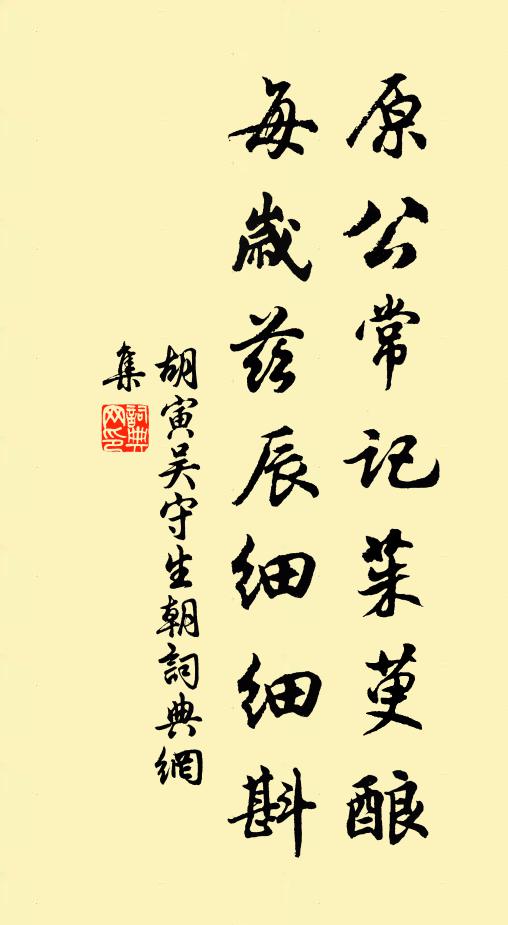 原公常记茱萸酿
每岁兹辰细细斟
胡寅吴守生朝詞典網
集
詞典
网印